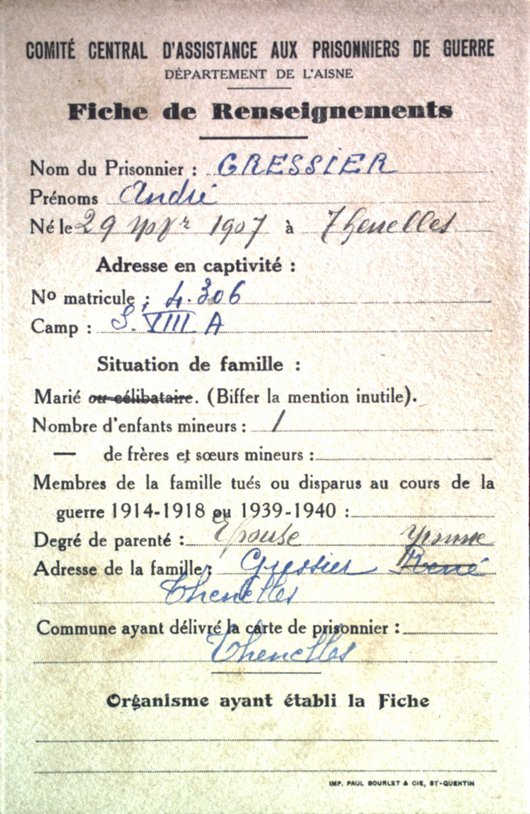 COMITÉ CENTRAL D'ASSISTANCE AUX PRISONNIERS DE GUERRE
DÉPARTEMENT DE L'AISNE
Fiche de Renseignements
Nom du Prisonnier : GRESSIER
Prénoms André
Né le 29 9bre 1907 à Thenelles
Adresse en captivité :
No matricule : 4.306
Camp : S. VIII A
Situation de famille :
Marié ou célibataire. (Biffer la mention inutile).
Nombre d'enfants mineurs : 1
— de frères et sœurs mineurs :
Membres de la famille tués ou disparus au cours de la
guerre 1914-1918 ou 1939-1940 :
Degré de parenté : Epouse Yvonne
Adresse de la famille : Gressier René
Thenelles
Commune ayant délivré la carte de prisonnier :
Thenelles
Organisme ayant établi la Fiche
IMP. PAUL BOURLET & CIE, ST-QUENTIN